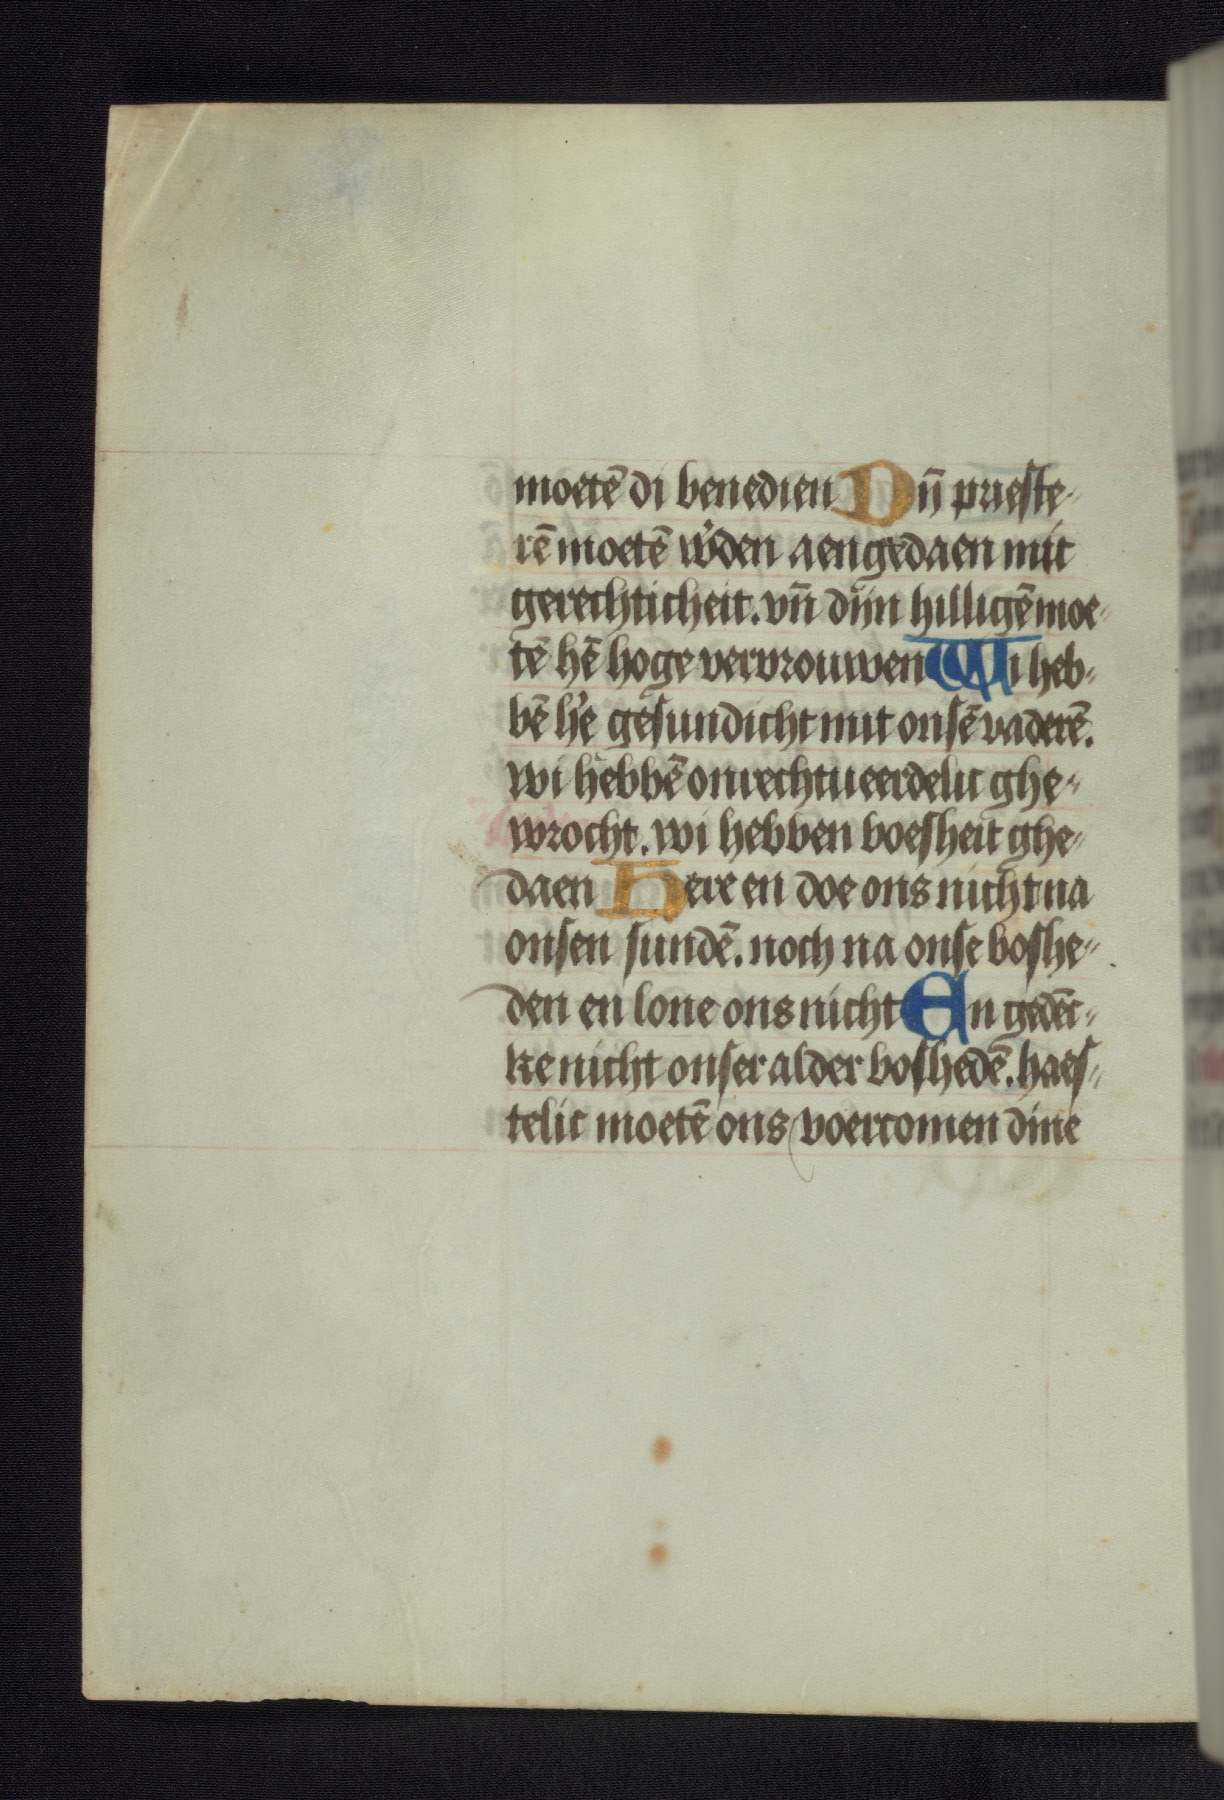 moetē di benedien Dīn prieste⸗
rē moetē w'den aengedaen mit
gerechticheit. vn̄ dijn hilligē moe⸗
tē hē hoge vervrouwen Wi heb⸗
bē h'e gesundicht mit onsē vaderē.
wi hebbē onrechtueerdelic ghe⸗
wrocht. wi hebben boesheit ghe⸗
daen Here en doe ons nicht na
onsen sundē. noch na onse boshe⸗
den en lone ons nicht En gedēc⸗
ke nicht onser alder boshedē. haes⸗
telic moetē ons voercomen dine